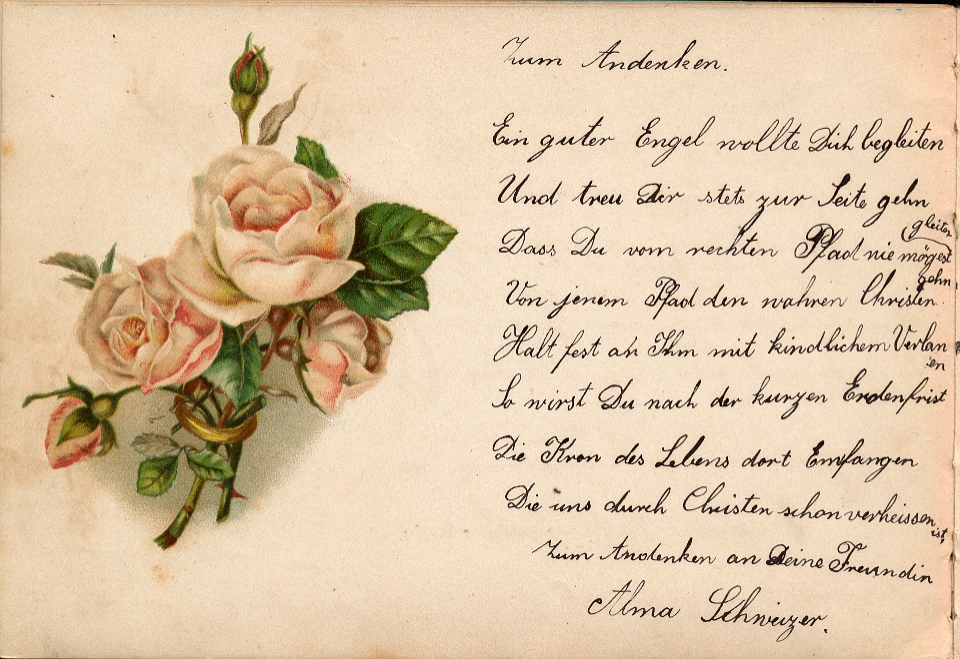 Zum Andenken.
Ein guter Engel wollte Dich begleiten
Und treu Dir stets zur Seite gehn
Dass Du vom rechten Pfad nie mögest gleiten
Von jenem Pfad den wahren Christen gehn
Halt fest an Ihm mit kindlichem Verlan
So wirst Du nach der kurzen Erdenfrist
Die Kron des Lebens dort Empfangen
Die uns durch Christen schon verheissen ist.
Zum Andenken an Deine Freundin
Alma Schweizer.